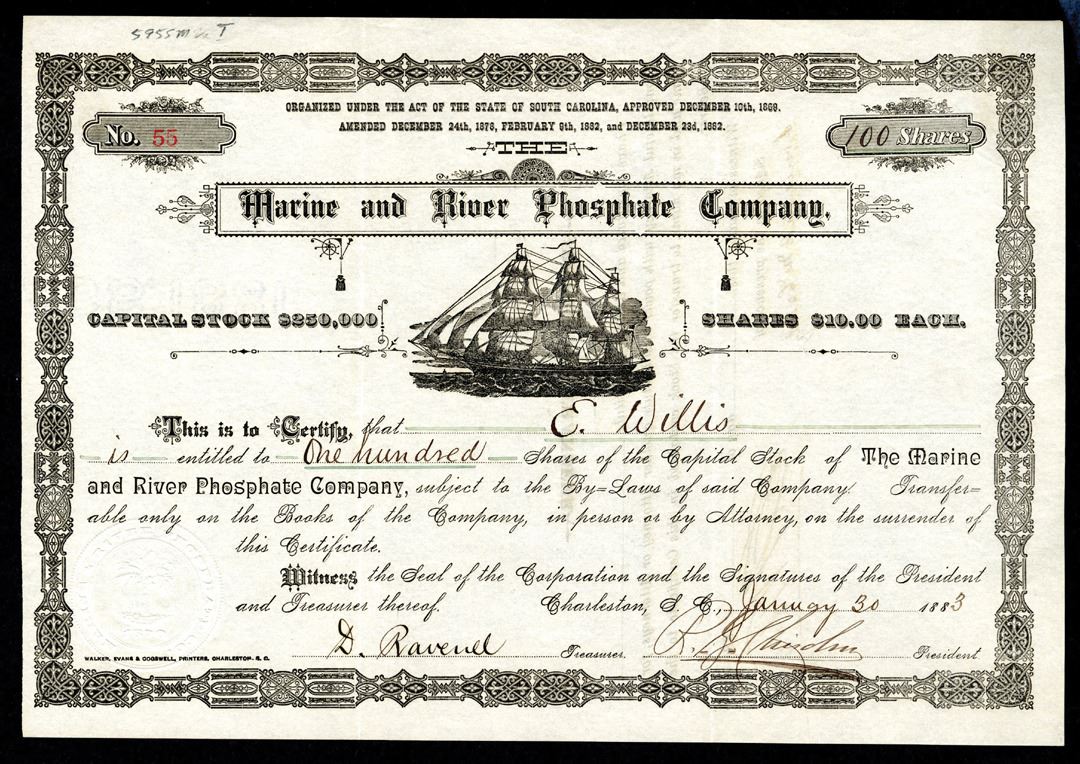 ORGANIZED UNDER THE ACT OF THE STATE OF SOUTH CAROLINA, APPROVED DECEMBER 10th, 1869.
AMENDED DECEMBER 24th, 1878, FEBRUARY 9th, 1882, and DECEMBER 23d, 1882.
No. 55
100 Shares
THE
Marine and River Phosphate Company.
CAPITAL STOCK $250,000
SHARES $10.00 EACH.
This is to Certify, that E. Willis
is entitled to One hundred Shares of the Capital Stock of The Marine
and River Phosphate Company, subject to the By=Laws of said Company. Transfer=
able only on the Books of the Company, in person or by Attorney, on the surrender of
this Certificate.
Witness the Seal of the Corporation and the Signatures of the President
and Treasurer thereof. Charleston, S. C., January 30 1883
D. Ravenel Treasurer. President
WALKER, EVANS & COGSWELL, PRINTERS, CHARLESTON. S. C.